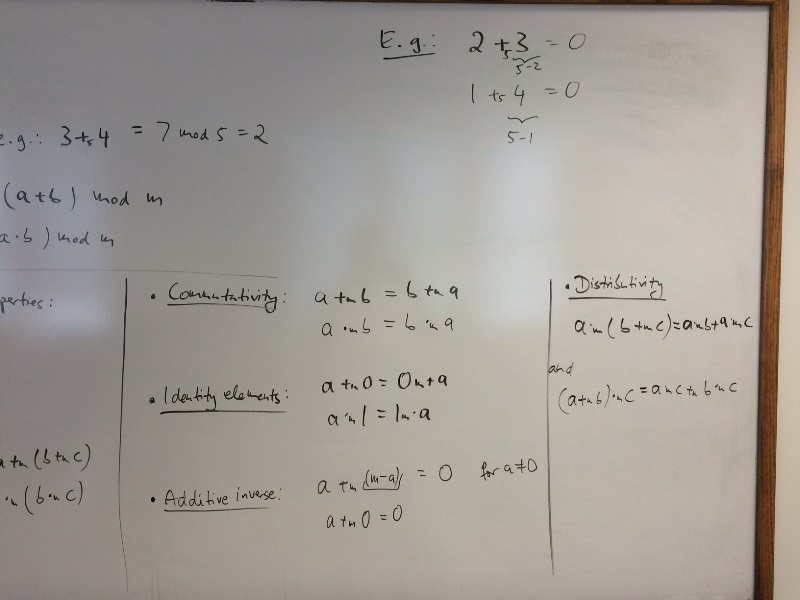 E.g.: 2 +₅ 3 = 0
5-2
1 +₅ 4 = 0
5-1
e.g.: 3 +₅ 4 = 7 mod 5 = 2
(a+b) mod m
a·b) mod m
perties:
a +ₘ (b +ₘ c)
·ₘ (b ·ₘ c)
• Commutativity: a +ₘ b = b +ₘ a
a ·ₘ b = b ·ₘ a
• Identity elements: a +ₘ 0 = 0ₘ + a
a ·ₘ 1 = 1ₘ · a
• Additive inverse: a +ₘ (m-a) = 0 for a≠0
a +ₘ 0 = 0
• Distributivity
a ·ₘ (b +ₘ c) = a ·ₘ b + a ·ₘ c
and
(a +ₘ b) ·ₘ c = a ·ₘ c +ₘ b ·ₘ c